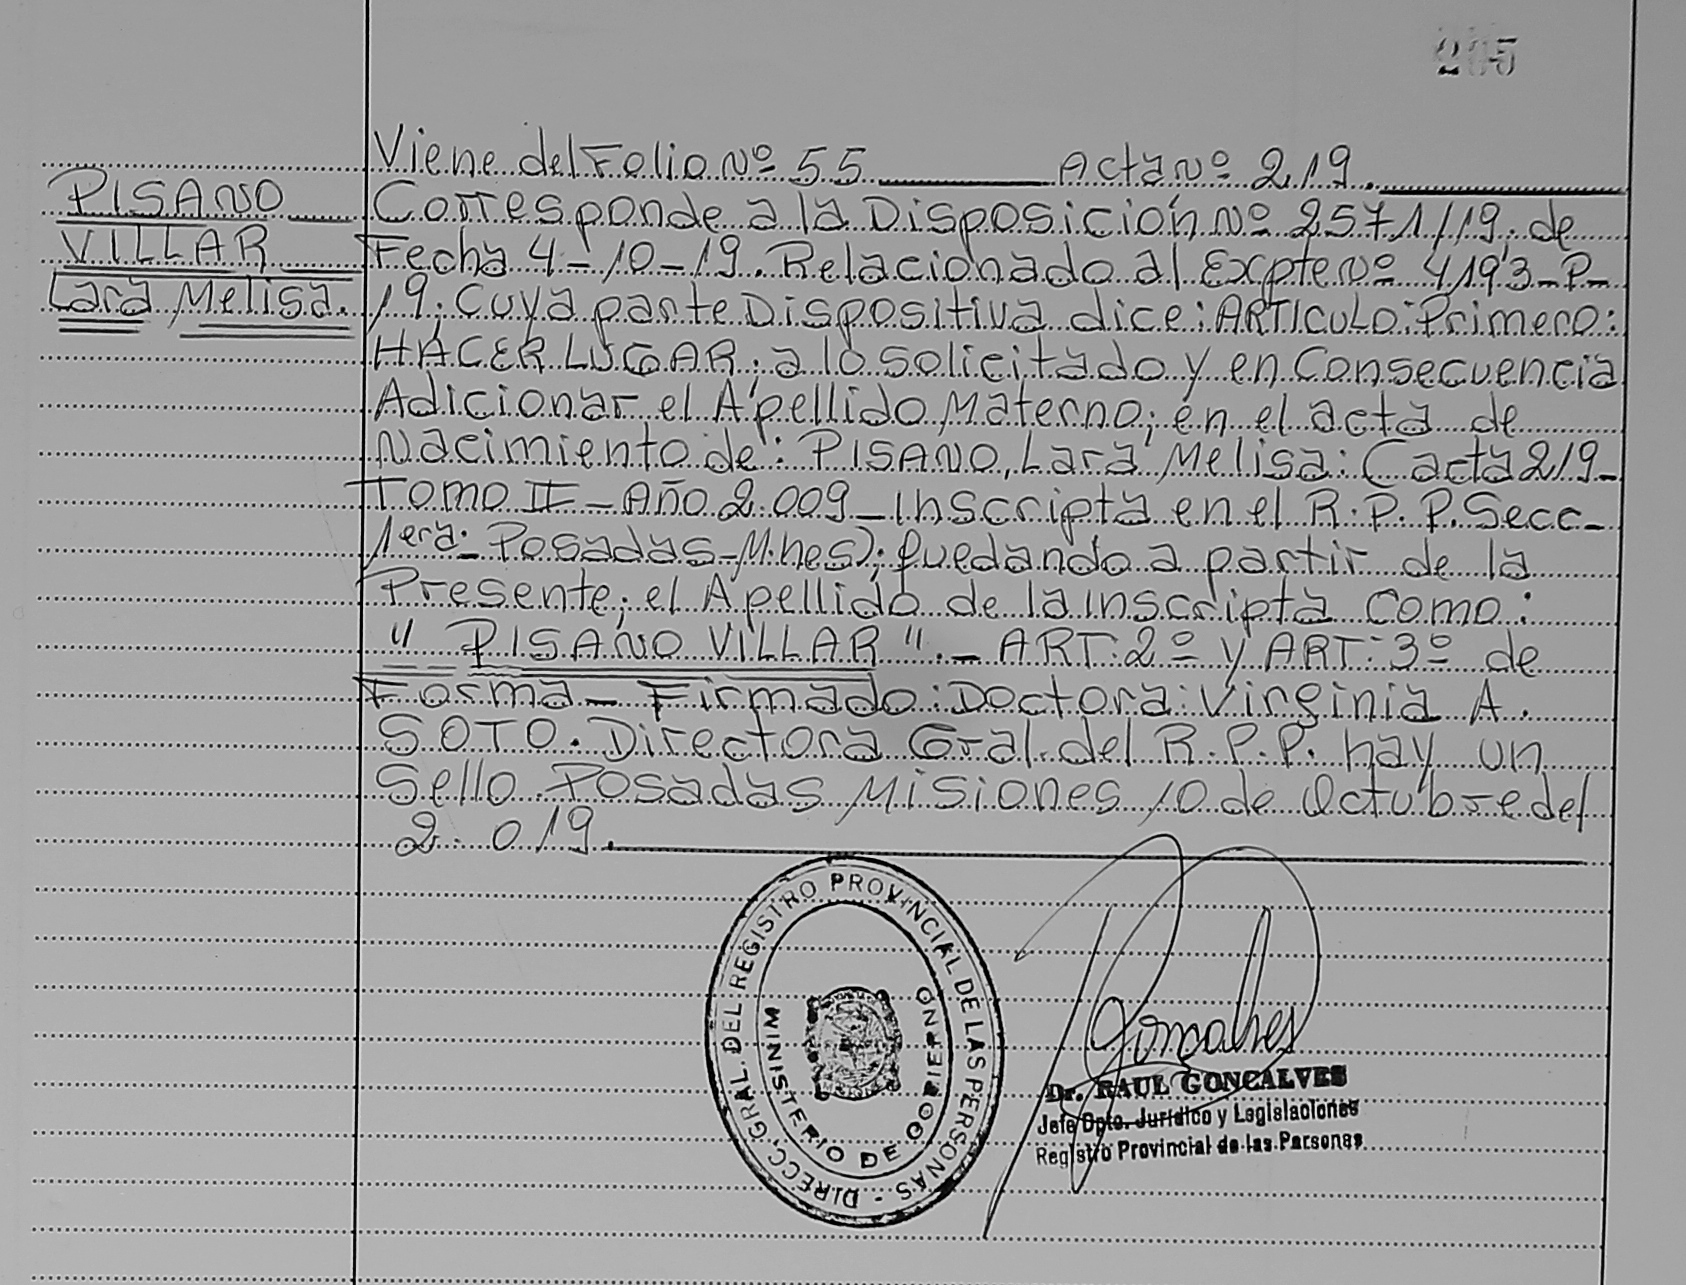 Viene del Folio Nº 55 Acta Nº 219.
PISANO
VILLAR
Lara Melisa.
Corresponde a la Disposición Nº 2571/19. de
Fecha 4-10-19. Relacionado al Expte Nº 4193-P-
19; Cuya parte Dispositiva dice: ARTICULO: Primero:
HACER LUGAR: a lo solicitado y en Consecuencia
Adicionar el Apellido Materno; en el acta de
Nacimiento de: PISANO, Lara Melisa: (acta 219-
Tomo II - Año 2.009_Inscripta en el R.P.P. Secc-
1era- Posadas-Mnes); quedando a partir de la
Presente; el Apellido de la Inscripta Como:
" PISANO VILLAR ".- ART: 2º y ART: 3º de
Forma - Firmado: Doctora: Virginia A.
SOTO. Directora Gral. del R.P.P. hay un
Sello. Posadas Misiones 10 de Octubre del
2.019.
DIRECC. GRAL. DEL REGISTRO PROVINCIAL DE LAS PERSONAS -
MINISTERIO DE GOBIERNO
Gonçalves
Dr. RAUL GONCALVES
Jefe Dpto. Jurídico y Legislaciones
Registro Provincial de las Personas